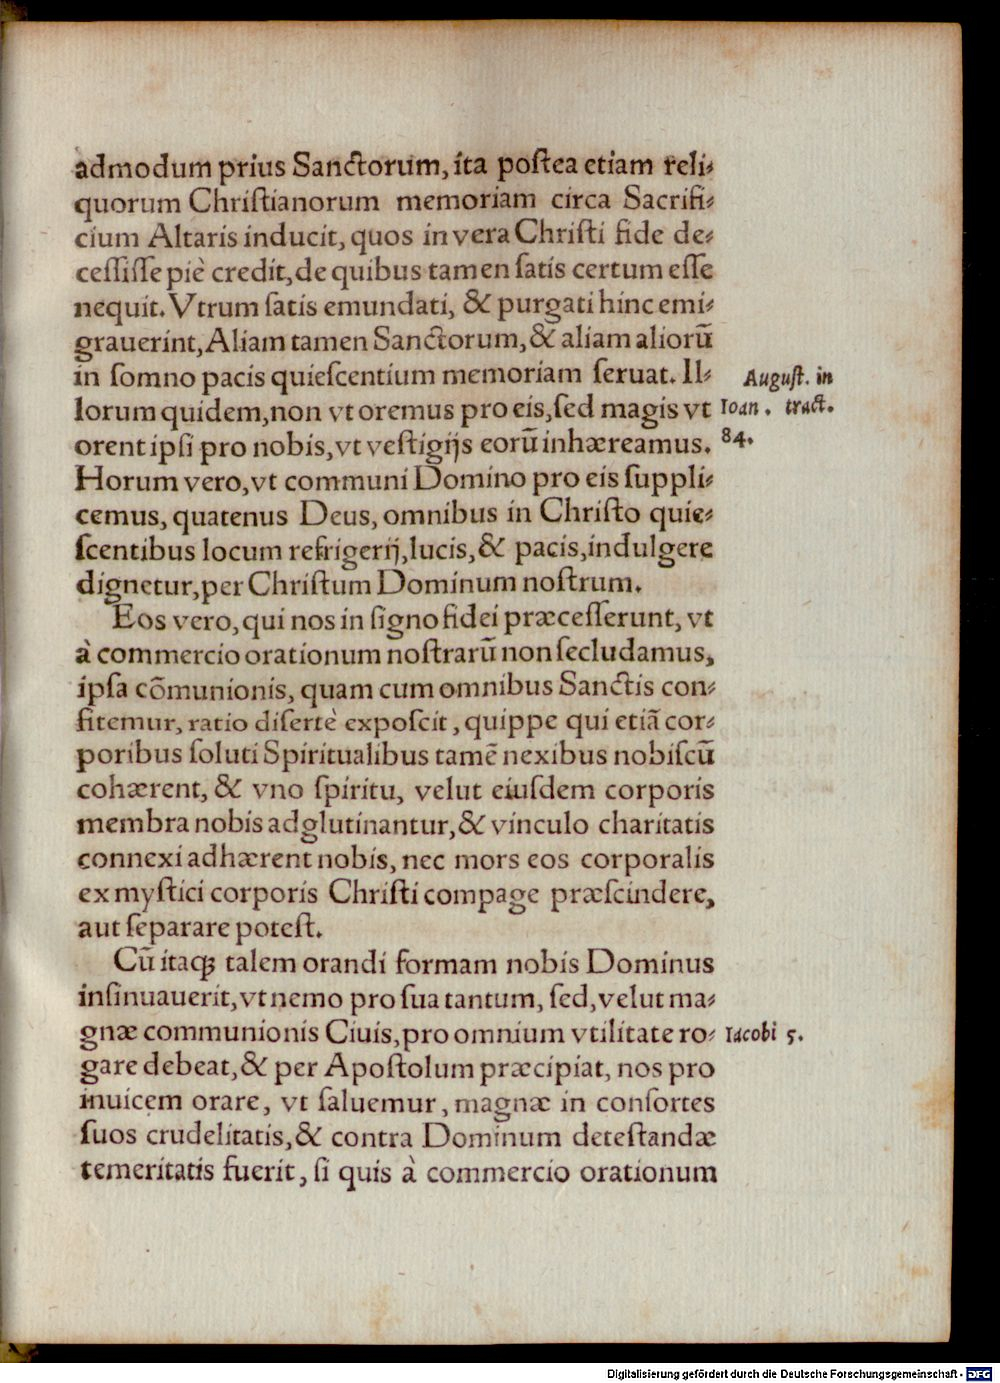 admodum prius Sanctorum, ita poſtea etiam reli⸗
quorum Chriſtianorum memoriam circa Sacrifi⸗
cium Altaris inducit, quos in vera Chriſti fide de⸗
ceſſiſſe piè credit, de quibus tamen ſatis certum eſſe
nequit. Vtrum ſatis emundati, & purgati hinc emi⸗
grauerint, Aliam tamen Sanctorum, & aliam aliorū
in ſomno pacis quieſcentium memoriam ſeruat. Il⸗
lorum quidem, non vt oremus pro eis, ſed magis vt
orent ipſi pro nobis, vt veſtigijs eorū inhæreamus.
August. in
Ioan. tract.
84.
Horum vero, vt communi Domino pro eis ſuppli⸗
cemus, quatenus Deus, omnibus in Chriſto quie⸗
ſcentibus locum refrigerij, lucis, & pacis, indulgere
dignetur, per Chriſtum Dominum noſtrum.
Eos vero, qui nos in ſigno fidei præceſſerunt, vt
à commercio orationum noſtrarū non ſecludamus,
ipſa cōmunionis, quam cum omnibus Sanctis con⸗
fitemur, ratio diſertè expoſcit, quippe qui etiā cor⸗
poribus ſoluti Spiritualibus tamē nexibus nobiſcū
cohærent, & vno ſpiritu, velut eiuſdem corporis
membra nobis adglutinantur, & vinculo charitatis
connexi adhærent nobis, nec mors eos corporalis
ex myſtici corporis Chriſti compage præſcindere,
aut ſeparare poteſt.
Cū itaq; talem orandi formam nobis Dominus
inſinuauerit, vt nemo pro ſua tantum, ſed, velut ma⸗
gnæ communionis Ciuis, pro omnium vtilitate ro⸗
Iacobi 5.
gare debeat, & per Apoſtolum præcipiat, nos pro
inuicem orare, vt ſaluemur, magnæ in conſortes
ſuos crudelitatis, & contra Dominum deteſtandæ
temeritatis fuerit, ſi quis à commercio orationum
Digitalisierung gefördert durch die Deutsche Forschungsgemeinschaft - DFG